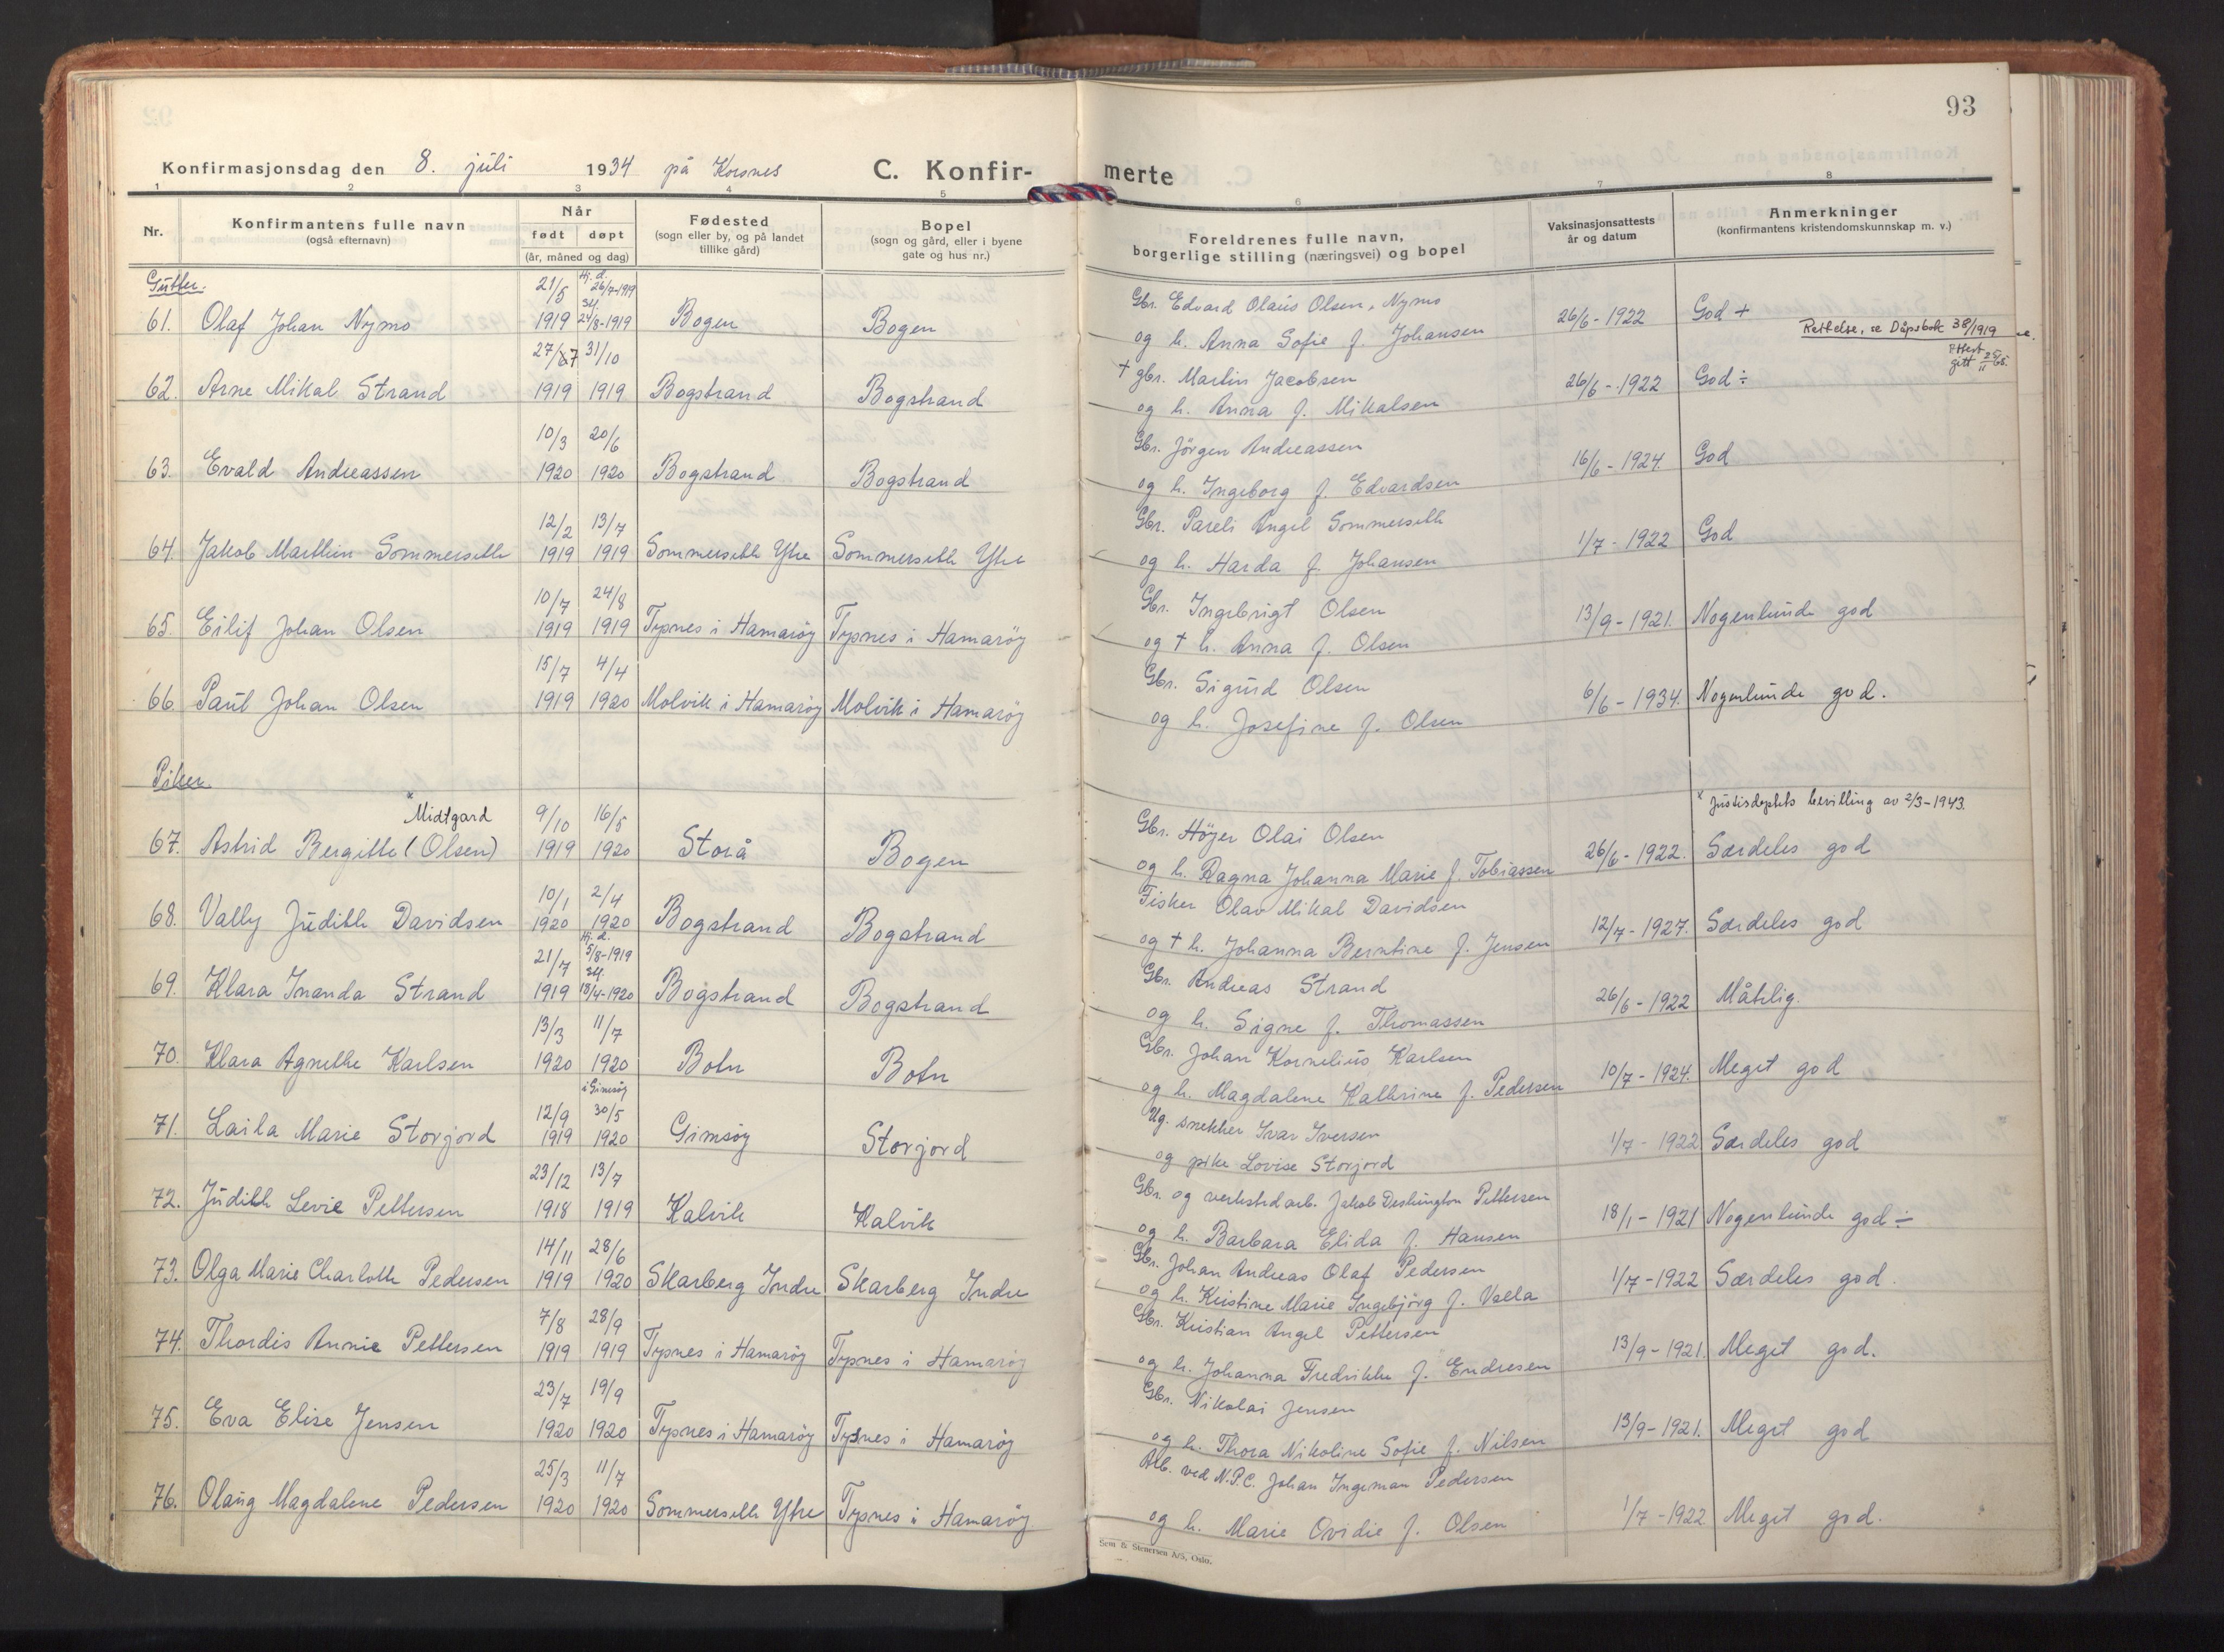 93
Konfirmasjonsdag den 8. juli 1934 på Korsnes C. Konfirmerte
1 2 3 4 5 6 7 8
Nr. Konfirmantens fulle navn (også efternavn) Når født døpt (år, måned og dag) Fødested (sogn eller by, og på landet tillike gård) Bopel (sogn og gård, eller i byene gate og hus nr.) Foreldrenes fulle navn, borgerlige stilling (næringsvei) og bopel Vaksinasjonsattests år og datum Anmerkninger (konfirmantens kristendomskunnskap m. v.)
Gutter.
21/5 Hj. d. 26/7-1919 Gbr. Edvard Olaus Olsen, Nymo
61. Olaf Johan Nymo 1919 stf. 24/8-1919 Bogen Bogen og h. Anna Sofie f. Johansen 26/6-1922 God + Rettelse, se Dåpsbok 38/1919
27/7 31/10 † gbr. Martin Jacobsen Attest gitt
62. Arne Mikal Strand 1919 1919 Bogstrand Bogstrand og h. Anna f. Mikalsen 26/6-1922 God ÷
10/3 20/6 Gbr. Jörgen Andreassen
63. Evald Andreassen 1920 1920 Bogstrand Bogstrand og h. Ingeborg f. Edvardsen 16/6-1924. God
12/2 13/7 Gbr. Pareli Angel Sommerseth
64. Jakob Marthin Sommerseth 1919 1919 Sommerseth Ytre Sommerseth Ytre og h. Harda f. Johansen 1/7-1922 God
10/7 24/8 Gbr. Ingebrigt Olsen
65. Eilif Johan Olsen 1919 1919 Typnes i Hamarøy Typnes i Hamarøy og † h. Anna f. Olsen 13/9-1921. Nogenlunde god
15/7 4/4 Gbr. Sigurd Olsen
66. Paul Johan Olsen 1919 1920 Molvik i Hamarøy Molvik i Hamarøy og h. Josefine f. Olsen 6/6-1934. Nogenlunde god.
Piker
x Midtgard 9/10 16/5 Gbr. Höyer Olai Olsen x Justisdeptets bevilling av 2/3-1943.
67. Astrid Bergitte (Olsen) 1919 1920 Storå Bogen og h. Ragna Johanna Marie f. Tobiassen 26/6-1922. Særdeles god
10/1 2/4 Fisker Olav Mikal Davidsen
68. Vally Judith Davidsen 1920 1920 Bogstrand Bogstrand og † h. Johanna Berntine f. Jensen 12/7-1927. Særdeles god
21/7 Hj. d. 5/8-1919 Gbr. Andreas Strand
69. Klara Inanda Strand 1919 stf. 18/4-1920 Bogstrand Bogstrand og h. Signe f. Thomassen 26/6-1922 Måtelig.
13/3 11/7 Gbr. Johan Kornelius Karlsen
70. Klara Agnethe Karlsen 1920 1920 Botn Botn og h. Magdalene Kathrine f. Pedersen 10/7-1924. Meget god
12/9 i Gimsøy 30/5 Ug. snekker Ivar Iversen
71. Laila Marie Storjord 1919 1920 Gimsøy Storjord og pike Lovise Storjord 1/7-1922 Særdeles god
23/12 13/7 Gbr. og verkstedarb. Jakob Deshington Pettersen
72. Judith Levie Pettersen 1918 1919 Kalvik Kalvik og h. Barbara Elida f. Hansen 18/1-1921 Nogenlunde god ÷
14/11 28/6 Gbr. Johan Andreas Olaf Pedersen
73. Olga Marie Charlotte Pedersen 1919 1920 Skarberg Indre Skarberg Indre og h. Kristine Marie Ingebjörg f. Valla 1/7-1922 Særdeles god.
7/8 28/9 Gbr. Kristian Angel Pettersen
74. Thordis Annie Pettersen 1919 1919 Typnes i Hamarøy Typnes i Hamarøy og h. Johanna Fredrikke f. Endresen 13/9-1921. Meget god.
23/7 19/9 Gbr. Nikolai Jensen
75. Eva Elise Jensen 1920 1920 Typnes i Hamarøy Typnes i Hamarøy og h. Thora Nikoline Sofie f. Nilsen 13/9-1921. Meget god
25/3 11/7 Arb. ved N.P.C. Johan Ingeman Pedersen
76. Olaug Magdalene Pedersen 1920 1920 Sommerseth Ytre Typnes i Hamarøy og h. Marie Ovidie f. Olsen 1/7-1922 Meget god.
Sem & Stenersen A/S, Oslo.